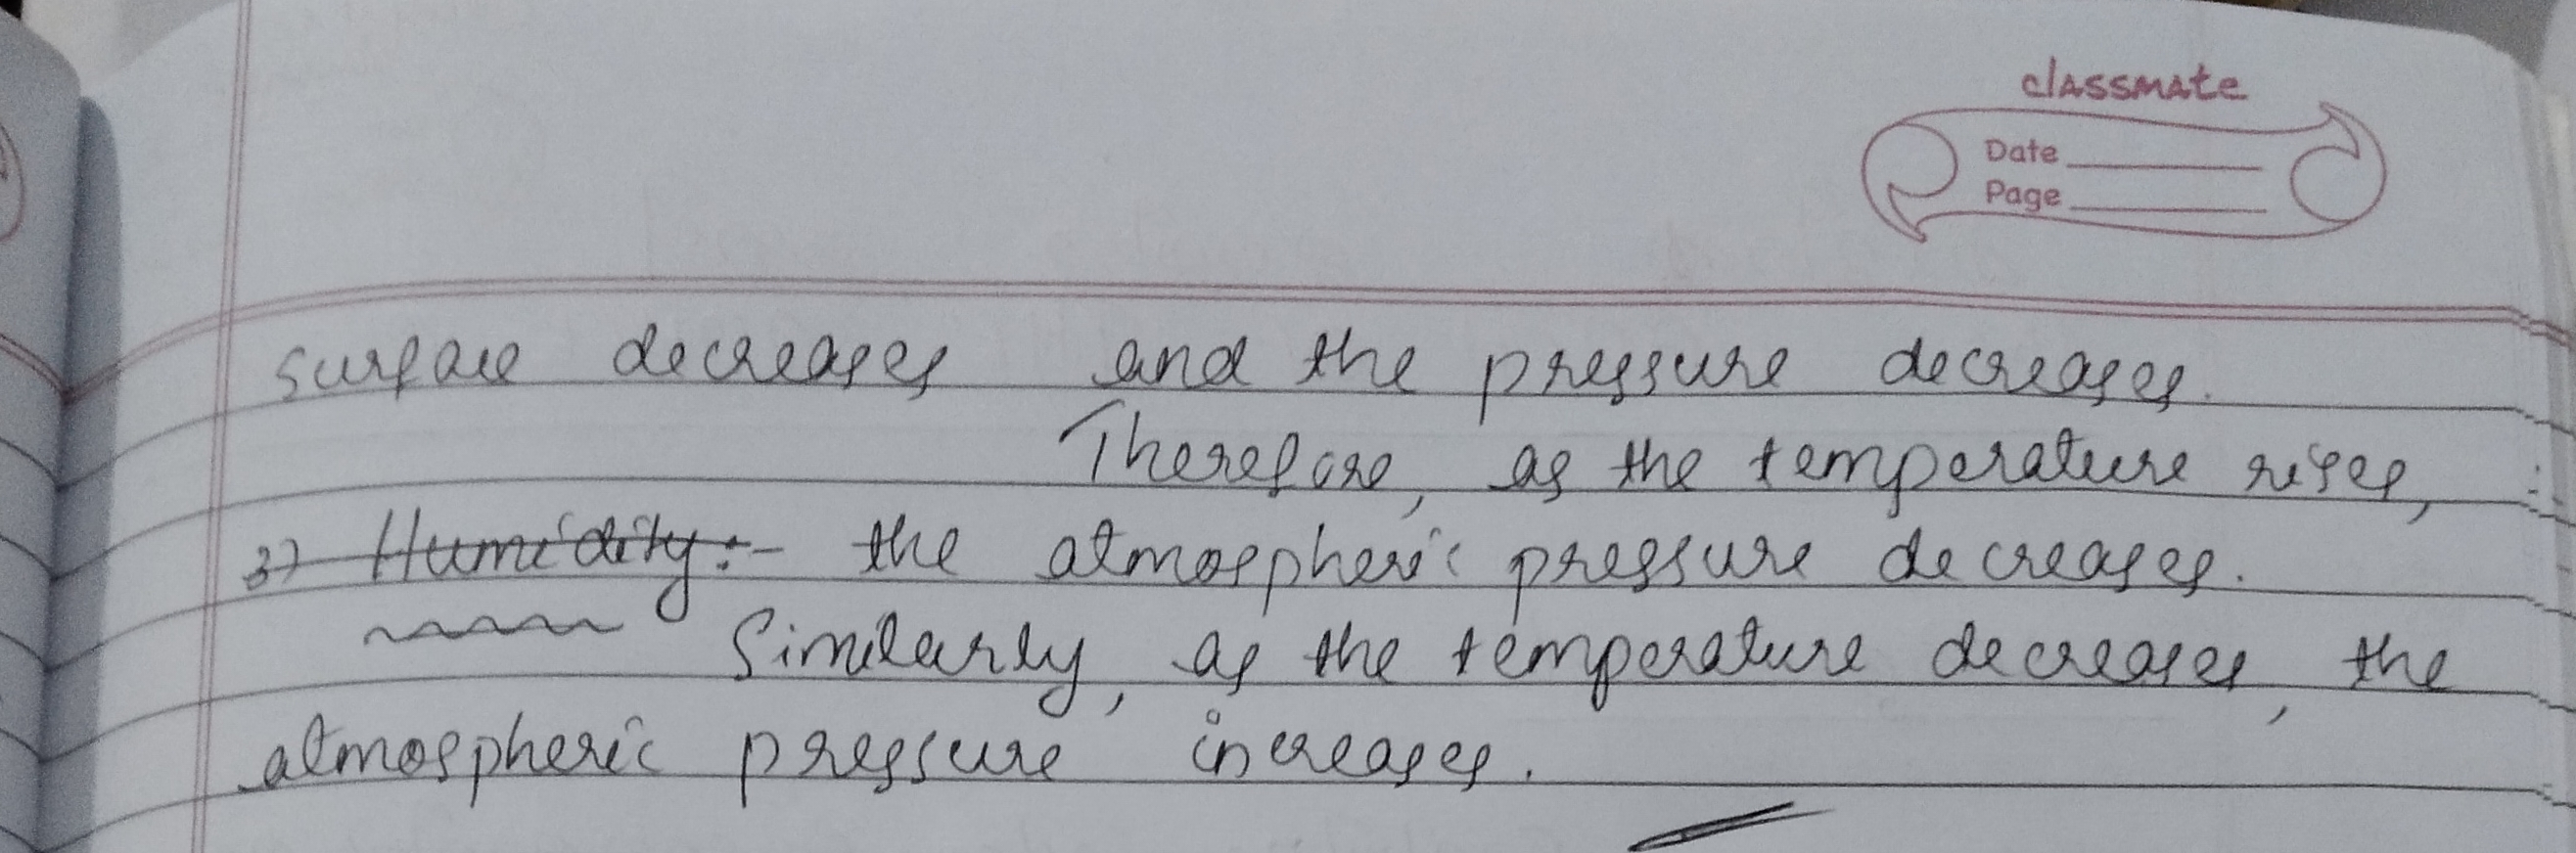 classmate
Date
Page
surface decreases and the pressure decreases.
Therefore, as the temperature rises,
3) Humidity:- the atmospheric pressure decreases.
Similarly, as the temperature decreases, the
atmospheric pressure increases.